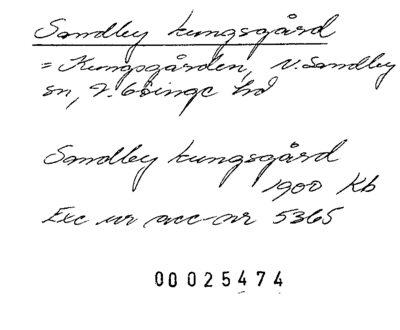 Sandby kungsgård
= Kungsgården, N. Sandby
sn, V. Göinge hd
Sandby kungsgård
1900 Kb
Exc ur acc-nr 5365
00025474